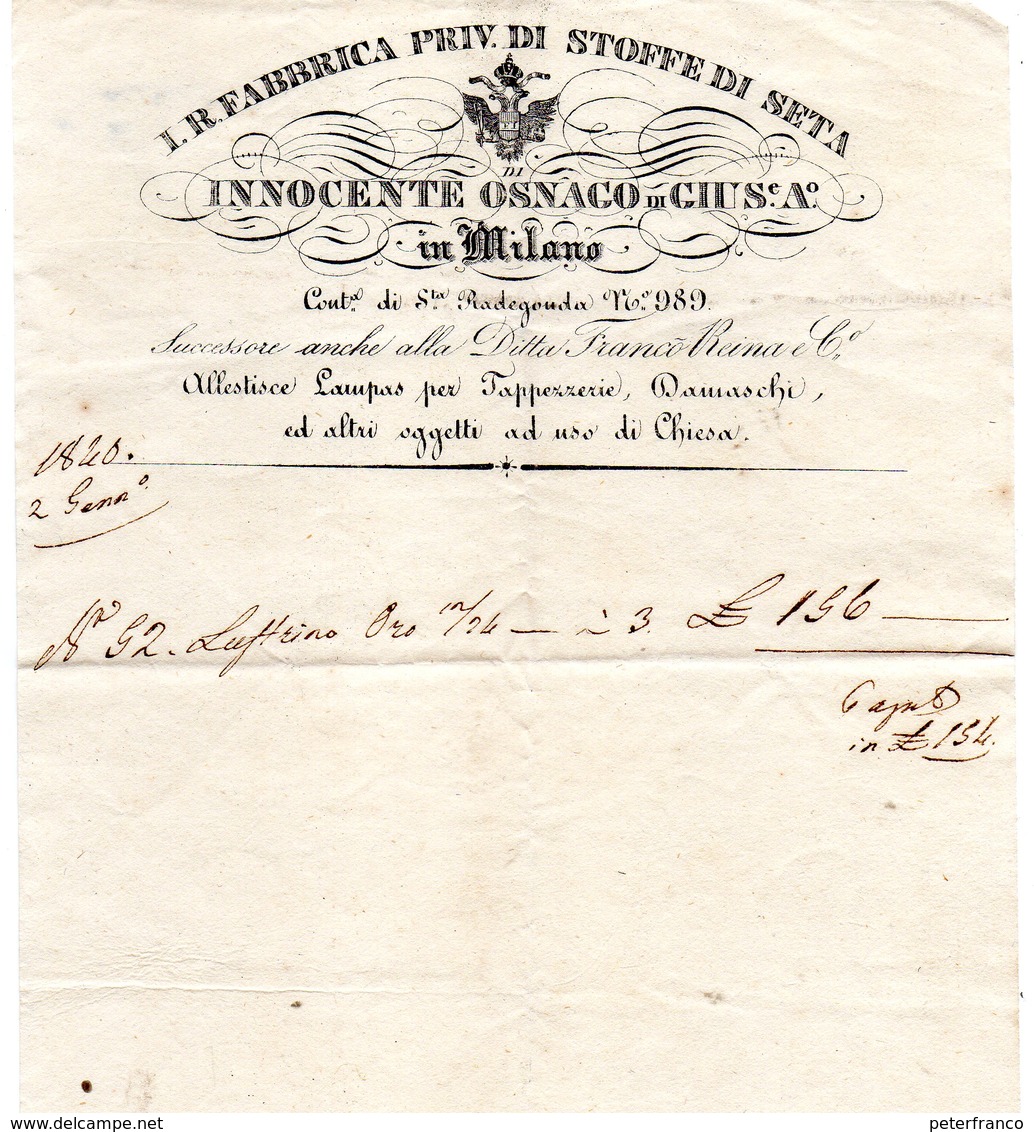 I. R. FABBRICA PRIV. DI STOFFE DI SETA
F I
DI
INNOCENTE OSNAGO DI GIUS.e A.o
in Milano
Cont.a di S.ta Radegonda N.o 989.
Successore anche alla Ditta Franco Reina e C.o
Allestisce Lampas per Tappezzerie, Damaschi,
ed altri oggetti ad uso di Chiesa.
1840.
2 Genn.o
N.o 52. Lustrino Oro — à 3. £ 156 —
in £ 154.
delcampe.net
peterfranco